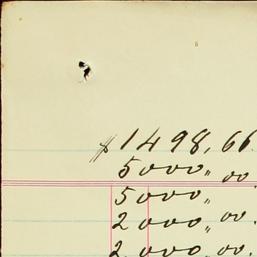 $1498,66
5000,, 00
5000,,
2000,, 00.
2000,, 00.